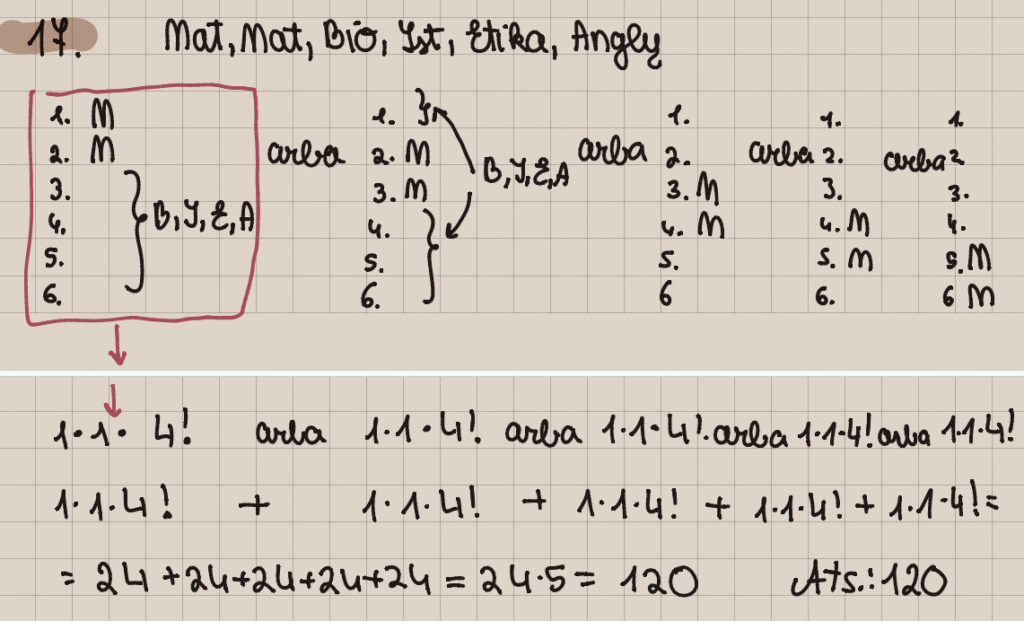 17. Mat, Mat, Bio, Ist, Etika, Angly
1. M
2. M
3.
4.
5.
6.
B, I, E, A
arba
1.
2. M
3. M
4.
5.
6.
B, I, E, A
arba
1.
2.
3. M
4. M
5.
6
arba
1.
2.
3.
4. M
5. M
6.
arba
1.
2
3.
4.
5. M
6 M
1·1· 4! arba 1·1·4! arba 1·1·4! arba 1·1·4! arba 1·1·4!
1·1·4! + 1·1·4! + 1·1·4! + 1·1·4! + 1·1·4! =
= 24 + 24 + 24 + 24 + 24 = 24·5 = 120 Ats.: 120